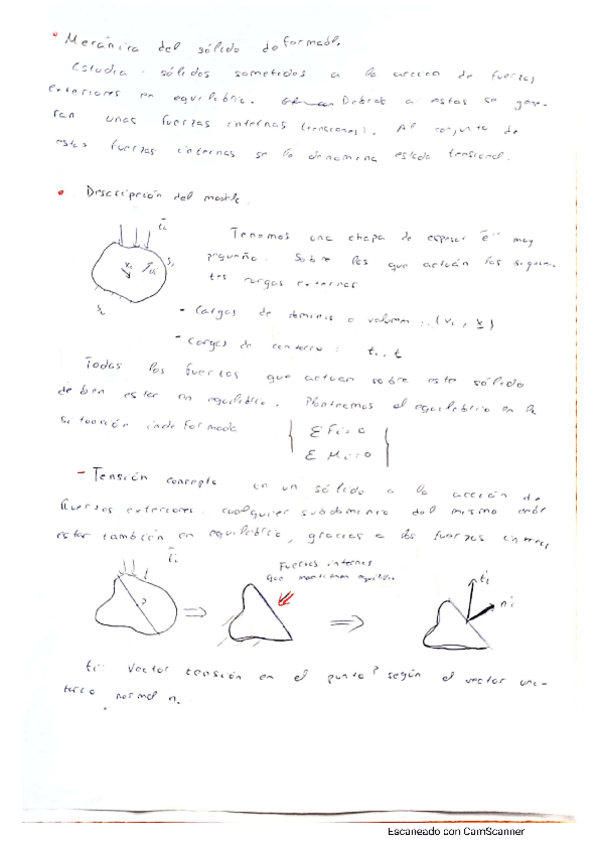 Mecánica del sólido deformable
Estudia sólidos sometidos a la acción de fuerzas
exteriores en equilibrio. Debido a estas se gene-
ran unas fuerzas internas (tensiones). Al conjunto de
estas fuerzas internas se le denomina estado tensional.
Descripción del modelo
t̄i
Tenemos una chapa de espesor "e" muy
pequeño. Sobre las que actúan las siguien-
tes cargas externas
xi
ui
- Cargas de dominio o volumen:
- Cargas de contorno: ti, t
Todas las fuerzas que actuan sobre este sólido
deben estar en equilibrio. Planteamos el equilibrio en la
situación indeformada
- Tensión concepto en un sólido a la acción de
fuerzas exteriores. cualquier subdominio del mismo debe
estar también en equilibrio, gracias a las fuerzas internas
t̄i
Fuerzas internas
que mantienen equilibrio
ti
ni
ti: Vector tensión en el punto P según el vector uni-
tario normal n.
Escaneado con CamScanner